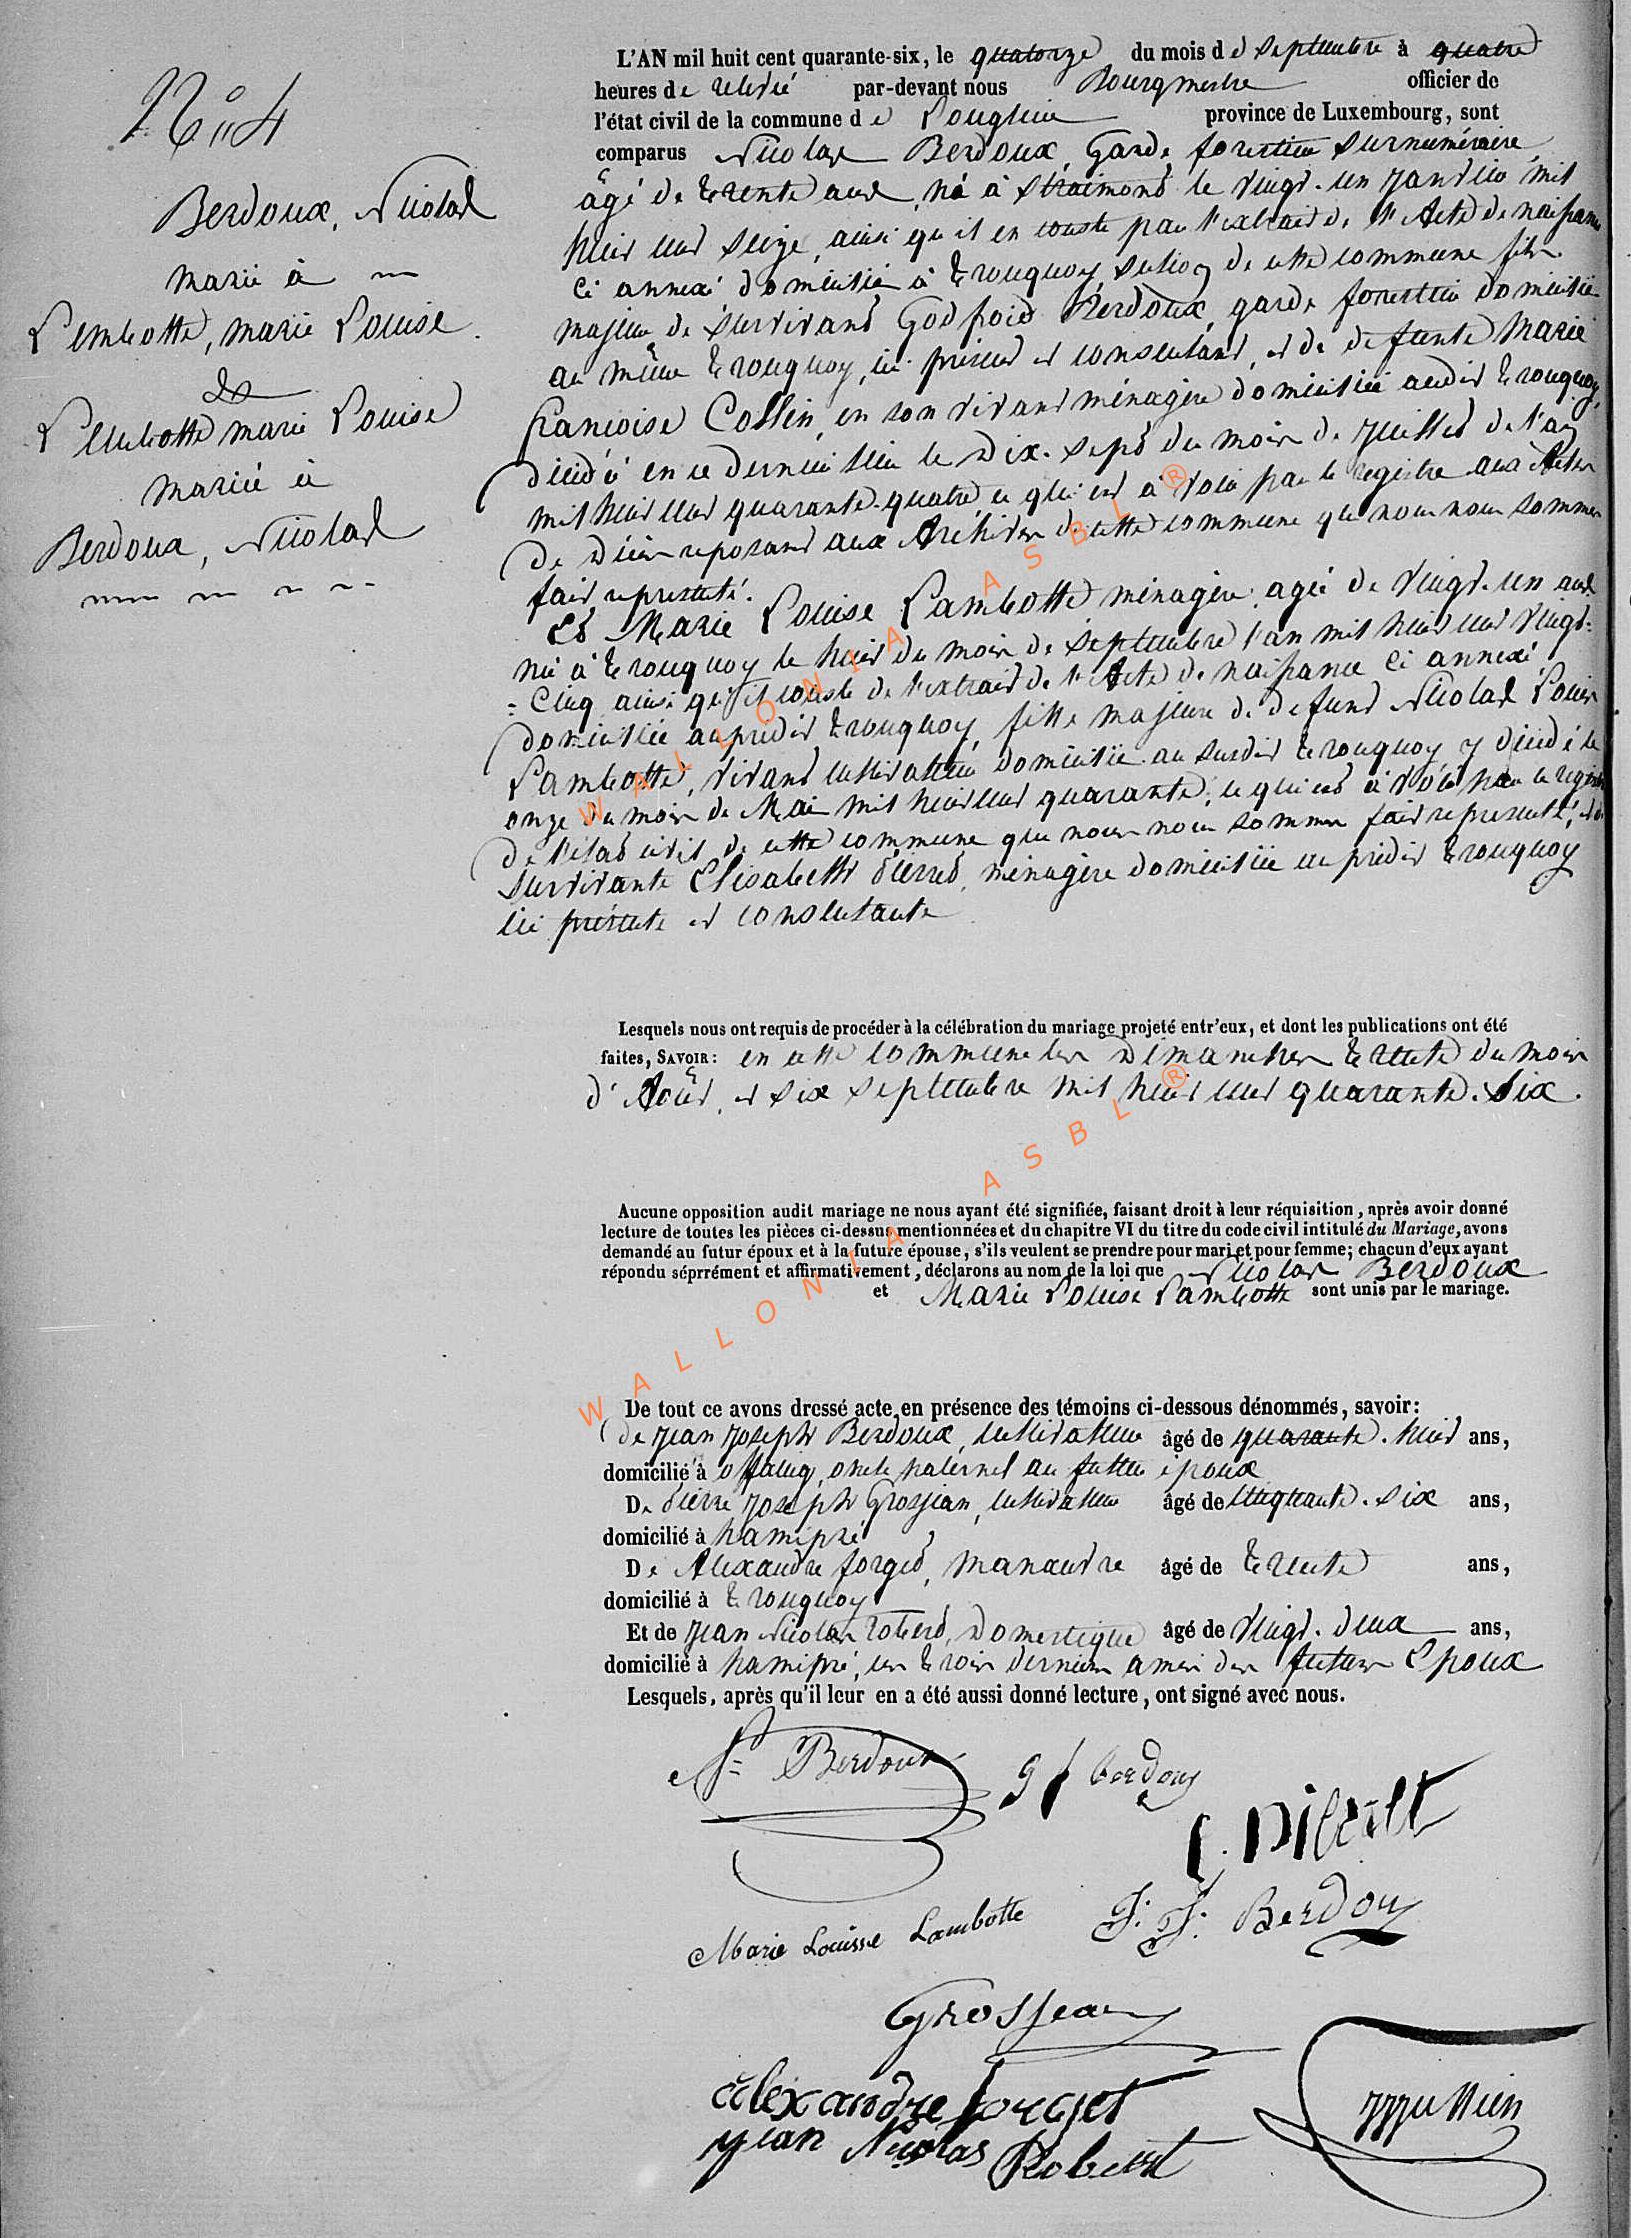 N° 4
Berdoux, Nicolas
marié à
Lambotte, marie Louise
&
Lambotte marie Louise
mariée à
Berdoux, Nicolas
L'AN mil huit cent quarante-six, le quatorze du mois de septembre à quatre
heures de relevé par-devant nous Bourgmestre officier de
l'état civil de la commune de Longlier province de Luxembourg, sont
comparus Nicolas Berdoux, Garde forestier surnuméraire,
âgé de trente ans, né à straimont le vingt-un janvier mil
huit cent seize, ainsi qu'il en conste par l'extrait de l'Acte de naissance
ci annexé, domicilié à tronquoy, section de cette commune fils
majeur de survivant Godfroid Berdoux, garde forestier domicilié
au même tronquoy, ici présent et consentant, et de defunte Marie
françoise Collin, en son vivant ménagère domiciliée audit tronquoy,
décédé en ce dernier lieu le dix-sept du mois de juillet de l'an
mil huit cent quarante-quatre, ce qui est à voir par le registre aux Actes
de Décès reposant aux Archives de cette commune que nous nous sommes
fait representé.
Et Marie Louise Lambotte ménagère, agée de vingt-un ans
née à tronquoy le huit du mois de septembre l'an mil huit cent vingt-
=cinq ainsi qu'il conste de l'extrait de l'Acte de naissance ci annexé,
domiciliée au predit tronquoy, fille majeure de defunt Nicolas Louis
Lambotte, vivant cultivateur domicilié au susdit tronquoy y décédé le
onze du mois de Mai mil huit cent quarante, ce qui est à voir par le registre
de l'état civil de cette commune que nous nous sommes fait representé, et de
survivante Elisabeth Pierret, ménagère domiciliée au prédit tronquoy
ici présente et consentante
Lesquels nous ont requis de procéder à la célébration du mariage projeté entr'eux, et dont les publications ont été
faites, SAVOIR: en cette commune les Dimanches trente du mois
d'Août, et six septembre mil huit cent quarante-six.
Aucune opposition audit mariage ne nous ayant été signifiée, faisant droit à leur réquisition, après avoir donné
lecture de toutes les pièces ci-dessus mentionnées et du chapitre VI du titre du code civil intitulé du Mariage, avons
demandé au futur époux et à la future épouse, s'ils veulent se prendre pour mari et pour femme; chacun d'eux ayant
répondu séprrément et affirmativement, déclarons au nom de la loi que Nicolas Berdoux
et Marie Louise Lambotte sont unis par le mariage.
De tout ce avons dressé acte en présence des témoins ci-dessous dénommés, savoir:
de jean joseph Berdoux, cultivateur âgé de quarante-huit ans,
domicilié à offaing, oncle paternel au futur époux
De Pierre joseph Grosjean, cultivateur âgé de cinquante-six ans,
domicilié à hamipré
De Alexandre forget, manoeuvre âgé de trente ans,
domicilié à tronquoy
Et de jean Nicolas Robert, Domestique âgé de vingt-deux ans,
domicilié à hamipré, ces trois derniers amis des futurs Epoux
Lesquels, après qu'il leur en a été aussi donné lecture, ont signé avec nous.
N= Berdoux
g f berdoux
Marie Louisse Lambotte
J: J: Berdoux
Grosjean
alexandre forget
jean Nicolas Robert
WALLONIA ASBL ®
WALLONIA ASBL ®